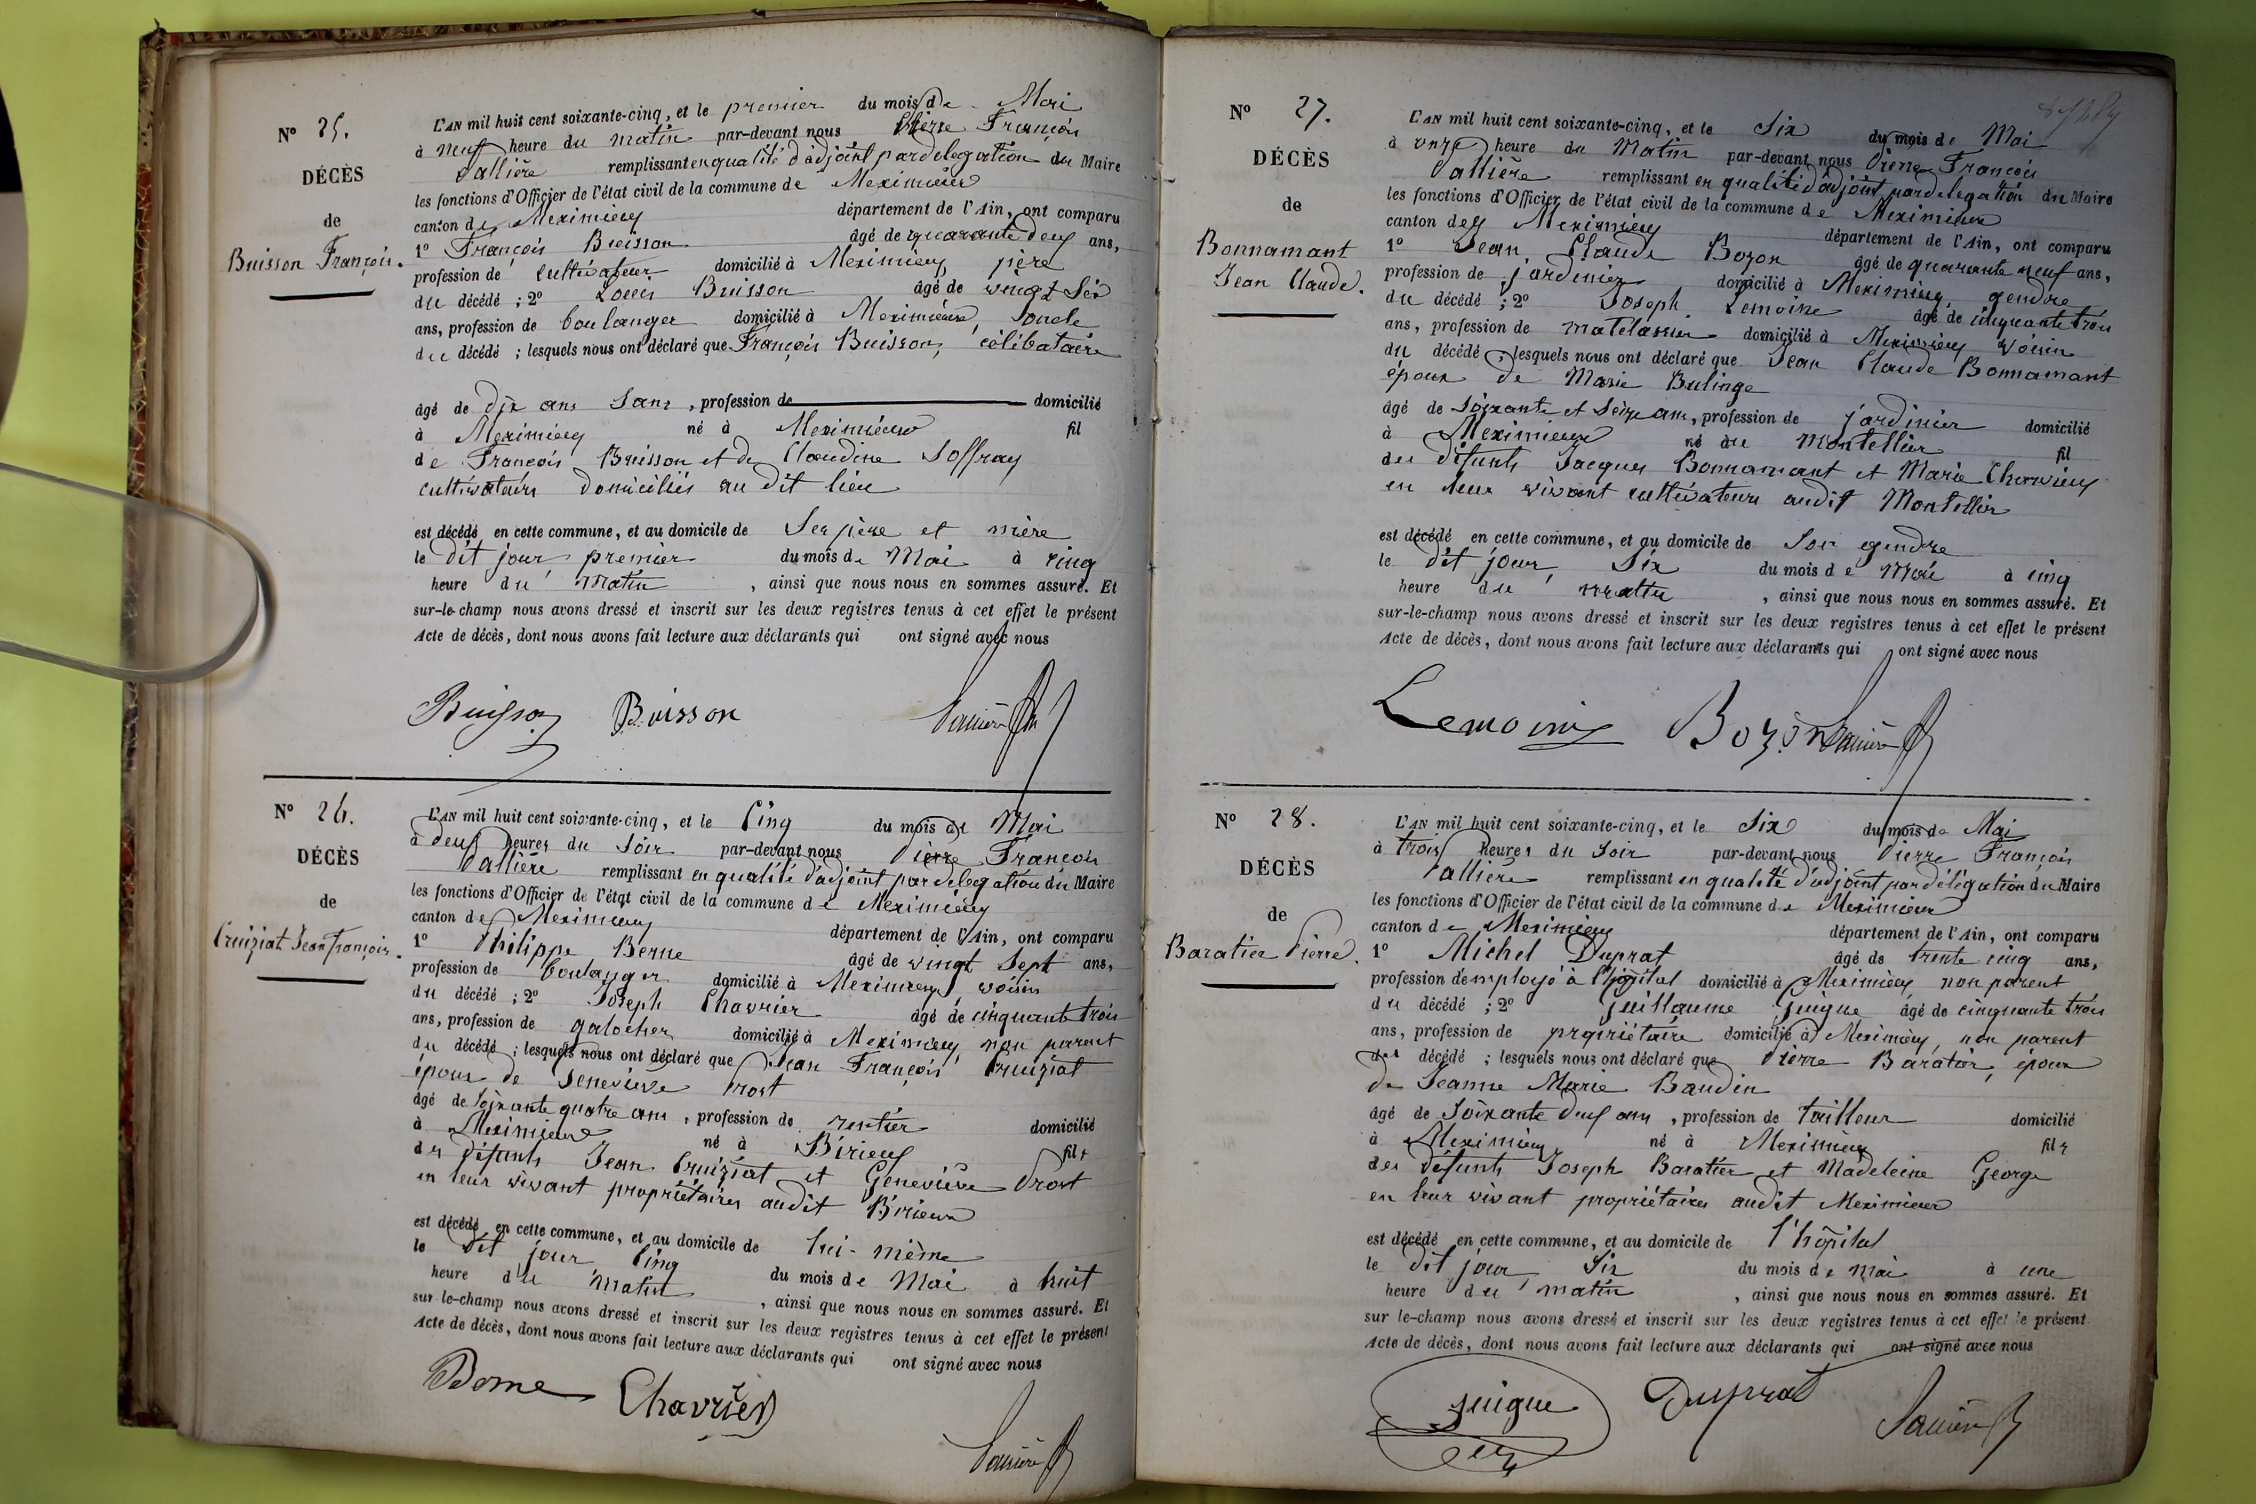 N° 25.
DÉCÈS
de
Buisson François.
L'AN mil huit cent soixante-cinq, et le premier du mois de Mai
à neuf heure du matin par-devant nous Pierre François
Vallière remplissant en qualité d'adjoint par delegation du Maire
les fonctions d'Officier de l'état civil de la commune de Meximieux
canton de Meximieux département de l'Ain, ont comparu
1° François Buisson âgé de quarante deux ans,
profession de cultivateur domicilié à Meximieux, père
du décédé ; 2° Louis Buisson âgé de vingt six
ans, profession de boulanger domicilié à Meximieux, oncle
du décédé ; lesquels nous ont déclaré que François Buisson, célibataire
âgé de dix ans sans, profession de domicilié
à Meximieux né à Meximieux fil
de François Buisson et de Claudine Joffray
cultivateurs domiciliés au dit lieu
est décédé en cette commune, et au domicile de Ses père et mère
le dit jour, premier du mois de Mai à cinq
heure du matin, ainsi que nous nous en sommes assuré. Et
sur-le-champ nous avons dressé et inscrit sur les deux registres tenus à cet effet le présent
Acte de décès, dont nous avons fait lecture aux déclarants qui ont signé avec nous
Buisson Buisson Vallière
N° 26.
DÉCÈS
de
Cruiziat Jean François.
L'AN mil huit cent soixante-cinq, et le Cinq du mois de Mai
à deux heures du Soir par-devant nous Pierre François
Vallière remplissant en qualité d'adjoint par delegation du Maire
les fonctions d'Officier de l'état civil de la commune de Meximieux
canton de Meximieux département de l'Ain, ont comparu
1° Philippe Berne âgé de vingt sept ans,
profession de boulanger domicilié à Meximieux, voisin
du décédé ; 2° Joseph Chavrier âgé de cinquante trois
ans, profession de galocher domicilié à Meximieux, non parent
du décédé ; lesquels nous ont déclaré que Jean François Cruiziat
époux de Genevieve Prost
âgé de soixante quatre ans, profession de rentier domicilié
à Meximieux né à Birieux fils
des défunts Jean Cruiziat et Geneviève Prost
en leur vivant propriétaires audit Birieux
est décédé en cette commune, et au domicile de lui-même
le dit jour cinq du mois de Mai à huit
heure du matin, ainsi que nous nous en sommes assuré. Et
sur le-champ nous avons dressé et inscrit sur les deux registres tenus à cet effet le présent
Acte de décès, dont nous avons fait lecture aux déclarants qui ont signé avec nous
Berne Chavrier Vallière
N° 27.
DÉCÈS
de
Bonnamant
Jean Claude.
L'AN mil huit cent soixante-cinq, et le Six du mois de Mai
à onze heure du Matin par-devant nous Pierre François
Vallière remplissant en qualité d'adjoint par delegation du Maire
les fonctions d'Officier de l'état civil de la commune de Meximieux
canton de Meximieux département de l'Ain, ont comparu
1° Jean Claude Bozon âgé de quarante neuf ans,
profession de jardinier domicilié à Meximieux, gendre
du décédé ; 2° Joseph Lemoine âgé de cinquante trois
ans, profession de matelassier domicilié à Meximieux voisin
du décédé, lesquels nous ont déclaré que Jean Claude Bonnamant
époux de Marie Bulinge
âgé de soixante et seize ans, profession de jardinier domicilié
à Meximieux né au Montellier fil
des défunts Jacques Bonnamant et Marie Chervieux
en leur vivant cultivateurs audit Montellier
est décédé en cette commune, et au domicile de Son gendre
le dit jour, Six du mois de Mai à cinq
heure du matin, ainsi que nous nous en sommes assuré. Et
sur-le-champ nous avons dressé et inscrit sur les deux registres tenus à cet effet le présent
Acte de décès, dont nous avons fait lecture aux déclarants qui ont signé avec nous
Lemoine Bozon Vallière
N° 28.
DÉCÈS
de
Baratier Pierre.
L'AN mil huit cent soixante-cinq, et le Six du mois de Mai
à trois heures du Soir par-devant nous Pierre François
Vallière remplissant en qualité d'adjoint par délégation du Maire
les fonctions d'Officier de l'état civil de la commune de Meximieux
canton de Meximieux département de l'Ain, ont comparu
1° Michel Duprat âgé de trente cinq ans,
profession d'employé à l'hôpital domicilié à Meximieux, non parent
du décédé ; 2° Guillaume Guigue âgé de cinquante trois
ans, profession de propriétaire domicilié à Meximieux, non parent
du décédé ; lesquels nous ont déclaré que Pierre Baratier, époux
de Jeanne Marie Baudin
âgé de soixante deux ans, profession de tailleur domicilié
à Meximieux né à Meximieux fils
des défunts Joseph Baratier et Madeleine George
en leur vivant propriétaires audit Meximieux
est décédé en cette commune, et au domicile de l'hôpital
le dit jour, Six du mois de Mai à une
heure du matin, ainsi que nous nous en sommes assuré. Et
sur le-champ nous avons dressé et inscrit sur les deux registres tenus à cet effet le présent
Acte de décès, dont nous avons fait lecture aux déclarants qui ont signé avec nous
Guigue Duprat Vallière